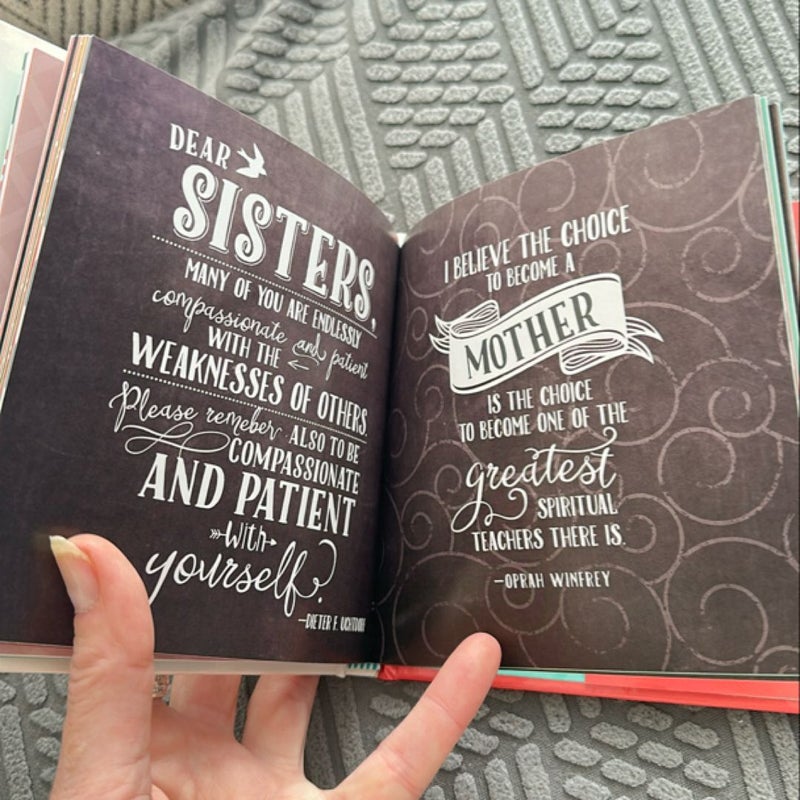 DEAR
SISTERS,
MANY OF YOU ARE ENDLESSLY
compassionate and patient
WITH THE
WEAKNESSES OF OTHERS.
Please remeber ALSO TO BE
COMPASSIONATE
AND PATIENT
with
yourself.
—DIETER F. UCHTDORF
I BELIEVE THE CHOICE
TO BECOME A
MOTHER
IS THE CHOICE
TO BECOME ONE OF THE
greatest
SPIRITUAL
TEACHERS THERE IS.
—OPRAH WINFREY